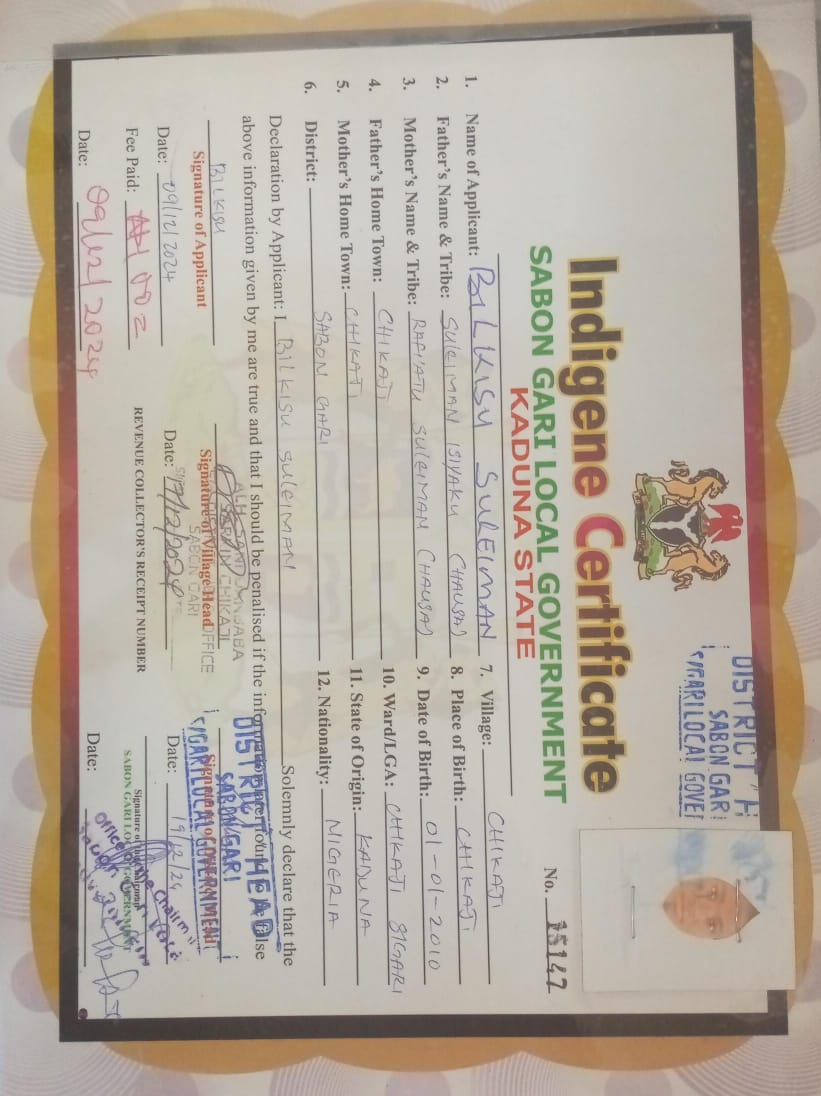 DISTRICT H
SABON GARI
S/GARI LOCAL GOVE
Indigene Certificate
SABON GARI LOCAL GOVERNMENT
KADUNA STATE
No. 15147
1. Name of Applicant: BILKISU SULEIMAN
2. Father's Name & Tribe: SULEIMAN ISIYAKU (HAUSA)
3. Mother's Name & Tribe: RAFI'ATU SULEIMAN (HAUSA)
4. Father's Home Town: CHIKAJI
5. Mother's Home Town: CHIKAJI
6. District: SABON GARI
7. Village: CHIKAJI
8. Place of Birth: CHIKAJI
9. Date of Birth: 01-01-2010
10. Ward/LGA: CHIKAJI S/GARI
11. State of Origin: KADUNA
12. Nationality: NIGERIA
Declaration by Applicant: I BILKISU SULEIMAN Solemnly declare that the
above information given by me are true and that I should be penalised if the information are found to be false
BILKISU
Signature of Applicant
Date: 09/12/2024
Signature of Village Head
CHIKAJI
OFFICE
SABON GARI
Date: /12/2024
DISTRICT HEAD
SABON GARI
S/GARI LOCAL GOVERNMENT
Date: 19/12/24
Fee Paid:
Date: 09/12/2024
REVENUE COLLECTOR'S RECEIPT NUMBER
Signature of
SABON GARI LOCAL GOVERNMENT
Date: